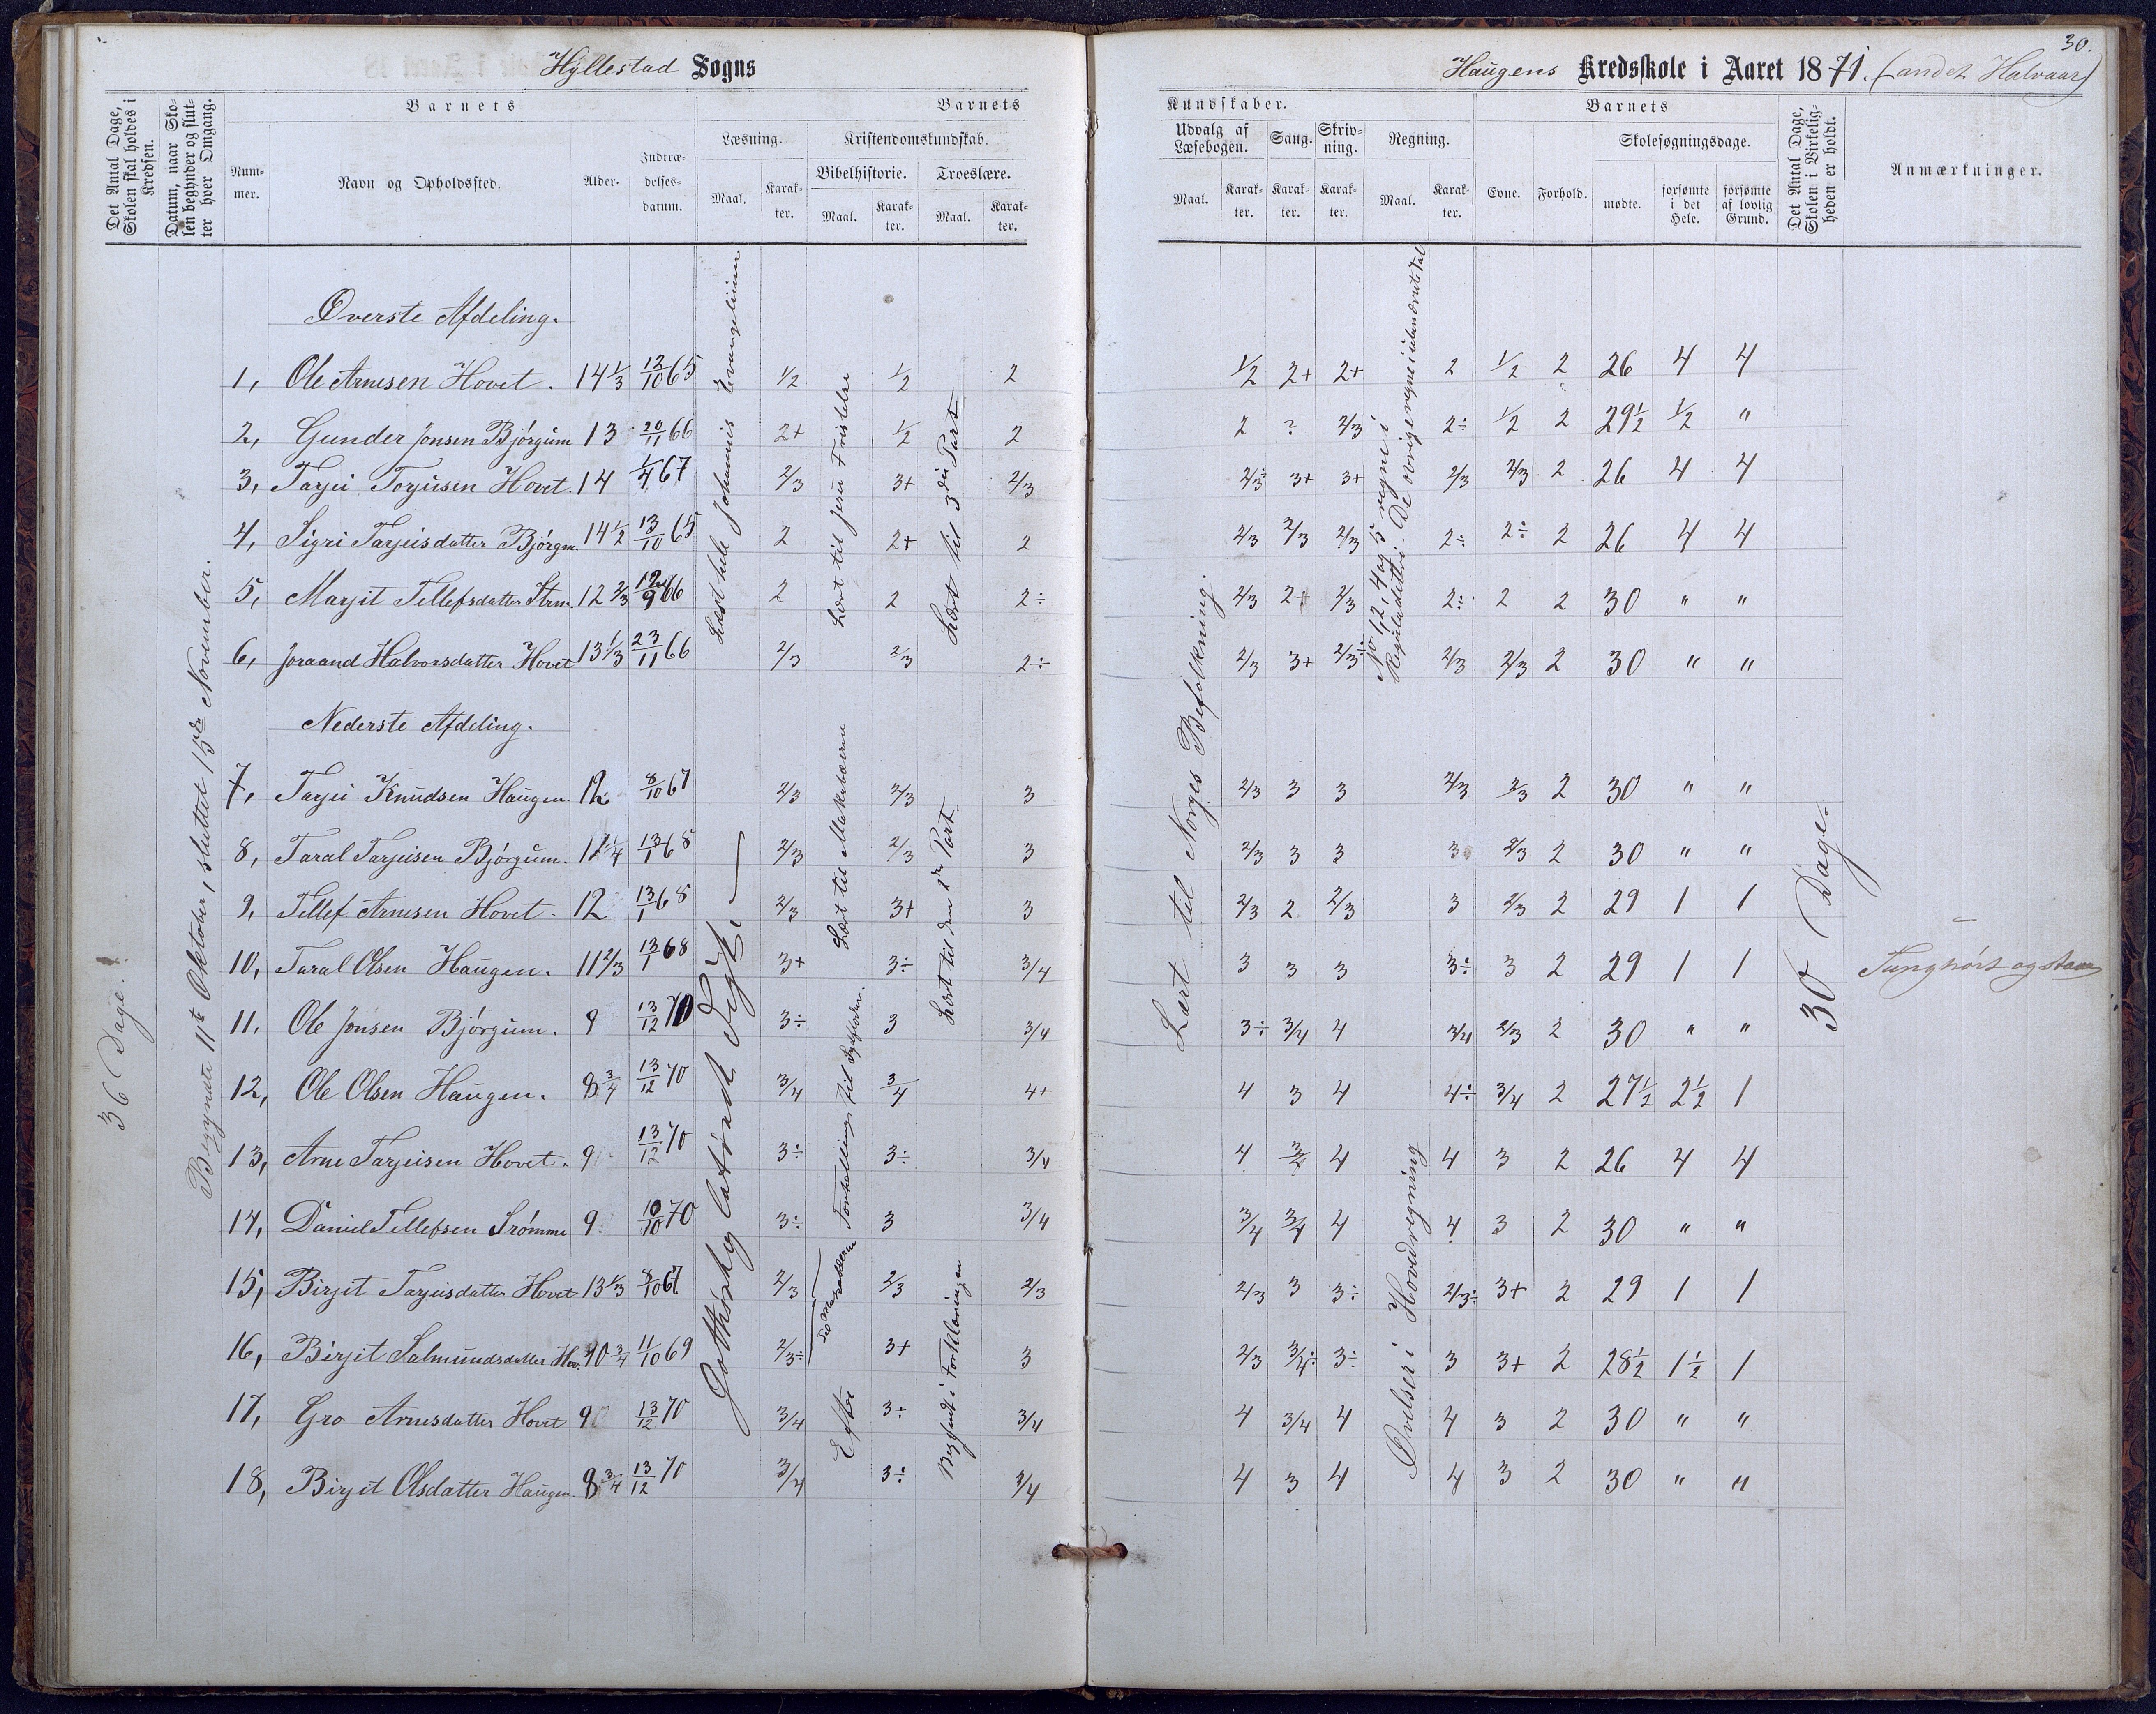 Hyllestad Sogns
Haugens Kredsskole i Aaret 1871. (andet Halvaar)
30.
Det Antal Dage, Skolen skal holdes i Kredsen.
Datum, naar Skolen begynder og slutter hver Omgang.
Barnets
Nummer.
Navn og Opholdssted.
Alder.
Indtrædelsesdatum.
Barnets
Læsning.
Maal.
Karakter.
Kristendomskundskab.
Bibelhistorie.
Maal.
Karakter.
Troeslære.
Maal.
Karakter.
Kundskaber.
Udvalg af Læsebogen.
Maal.
Karakter.
Sang.
Karakter.
Skrivning.
Karakter.
Regning.
Maal.
Karakter.
Barnets
Evne.
Forhold.
Skolesøgningsdage.
mødte.
forsømte i det Hele.
forsømte af lovlig Grund.
Det Antal Dage, Skolen i Virkeligheden er holdt.
Anmærkninger.
36 Dage.
Begyndte 11te Oktober, sluttet 15de November.
Øverste Afdeling.
1, Ole Arnesen Hovet. 14 1/3 12/10 65 1/2 1/2 2 1/2 2+ 2+ 2 1/2 2 26 4 4
2, Gunder Jonsen Bjørgum 13 20/11 66 2+ 1/2 2 2 ? 2/3 2÷ 1/2 2 29 1/2 1/2 "
3, Tarjei Torjusen Hovet. 14 1/4 67 2/3 3+ 2/3 2/3 3+ 3+ 2/3 2/3 2 26 4 4
4, Sigri Tarjeisdatter Bjørgm. 14 1/2 13/10 65 2 2+ 2 2/3 2/3 2/3 2÷ 2÷ 2 26 4 4
5, Marjit Tellefsdatter Strm. 12 2/3 12/9 66 2 2 2÷ 2/3 2+ 2/3 2÷ 2 2 30 " "
6, Joraand Halvorsdatter Hovet 13 1/3 23/11 66 2/3 2/3 2÷ 2/3 3+ 2/3÷ 2/3 2/3 2 30 " "
Læst hele Johannis Evangelium
Læst til Jesu Fristelse
Læst til 3die Part
No 1, 2, 4 og 5 regne i Reguladetri. De øvrige regne i ubenævnte Tal
Nederste Afdeling.
7, Tarjei Knudsen Haugen. 12 8/10 67 2/3 2/3 3 2/3 3 3 2/3 2/3 2 30 " "
8, Taral Tarjeisen Bjørgum. 12 1/4 13/1 68 2/3 2/3 3 2/3 3 3 3 2/3 2 30 " "
9, Tellef Arnesen Hovet. 12 13/1 68 2/3 3+ 3 2/3 2 2/3 3 2/3 2 29 1 1
10, Taral Olsen Haugen. 11 2/3 13/1 68 3+ 3÷ 3/4 3 3 3 3÷ 3 2 29 1 1 Tunghørt og stam
11. Ole Jonsen Bjørgum. 9 13/12 70 3÷ 3 3/4 3÷ 3/4 4 3/4 2/3 2 30 " "
12, Ole Olsen Haugen. 8 3/4 13/12 70 3/4 3/4 4+ 4 3 4 4÷ 3/4 2 27 1/2 2 1/2 1
13, Arne Tarjeisen Hovet. 9 13/12 70 3÷ 3÷ 3/4 4 3/4 4 4 3 2 26 4 4
14, Daniel Tellefsen Strømme 9 10/10 70 3÷ 3 3/4 3/4 3/4 4 4 3 2 30 " "
15, Birjit Tarjeisdatter Hovet 13 1/3 8/10 67 2/3 2/3 2/3 2/3 3 3÷ 2/3÷ 3+ 2 29 1 1
16, Birjit Salmundsdatter Hov. 10 3/4 11/10 69 2/3÷ 3+ 3 2/3 3/4÷ 3÷ 3 3+ 2 28 1/2 1 1/2 1
17, Gro Arnesdatter Hovet 9 13/12 70 3/4 3÷ 3/4 4 3/4 4 4 3 2 30 " "
18, Birjit Olsdatter Haugen. 8 3/4 13/12 70 3/4 3÷ 3/4 4 3 4 4 3 2 30 " "
Læst til Makabæerne
Læst til den 2den Part
Efter
Begyndt i Forklaringen
Lært til Norges Befolkning.
Øvelser i Hovedregning
30 Dage.